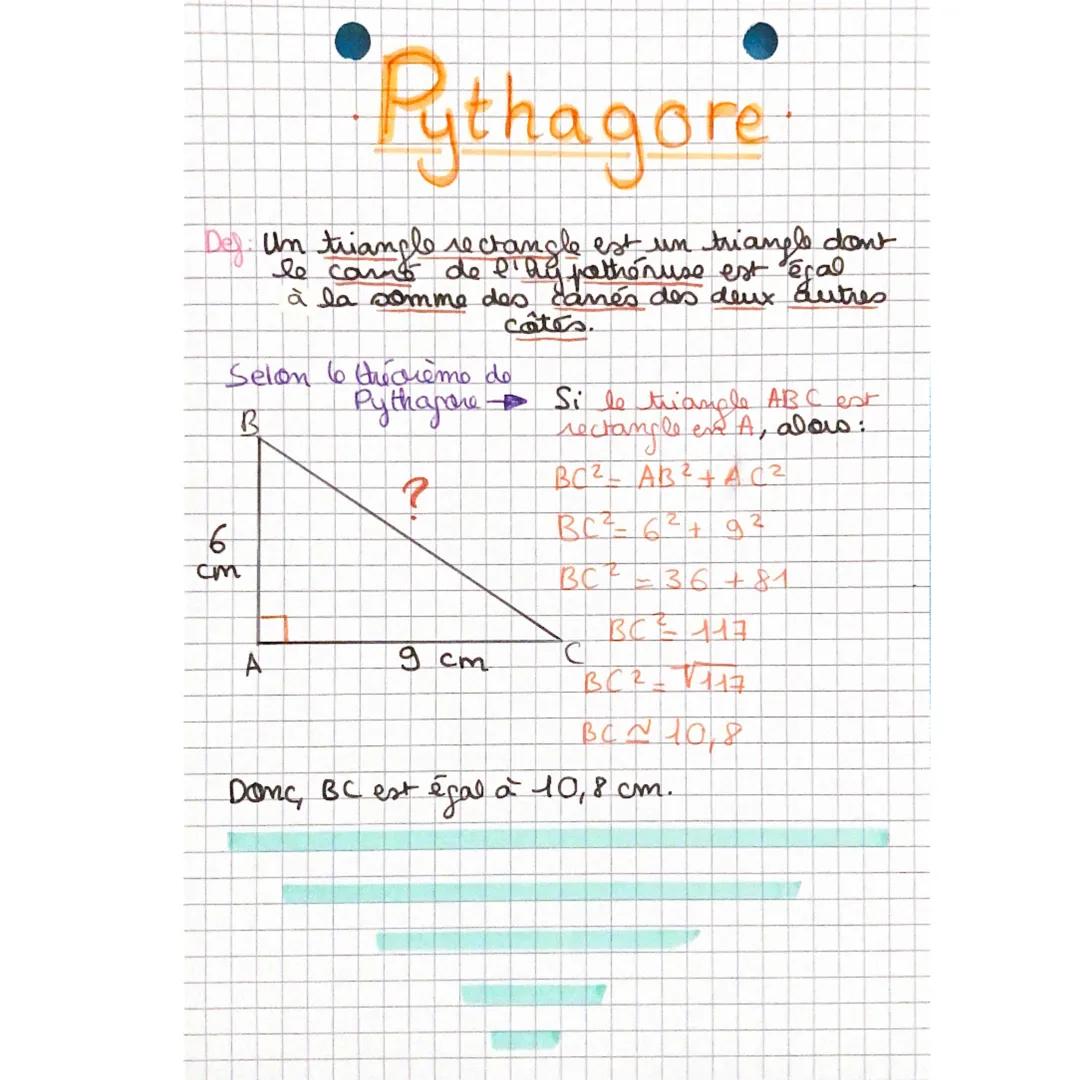 Pythagore
Def: Un triangle rectangle est un triangle dont
le carré de l'hypothénuse est égal
à la somme des carrés des deux autres
côtés.
Selon le théorème de
Pythagore → Si le triangle ABC est
rectangle en A, alors :
B
?
6
cm
A
9 cm
C
BC² = AB² + AC²
BC² = 6² + 9²
BC² = 36 + 81
BC² = 117
BC² = √117
BC ≃ 10,8
Donc, BC est égal à 10,8 cm.